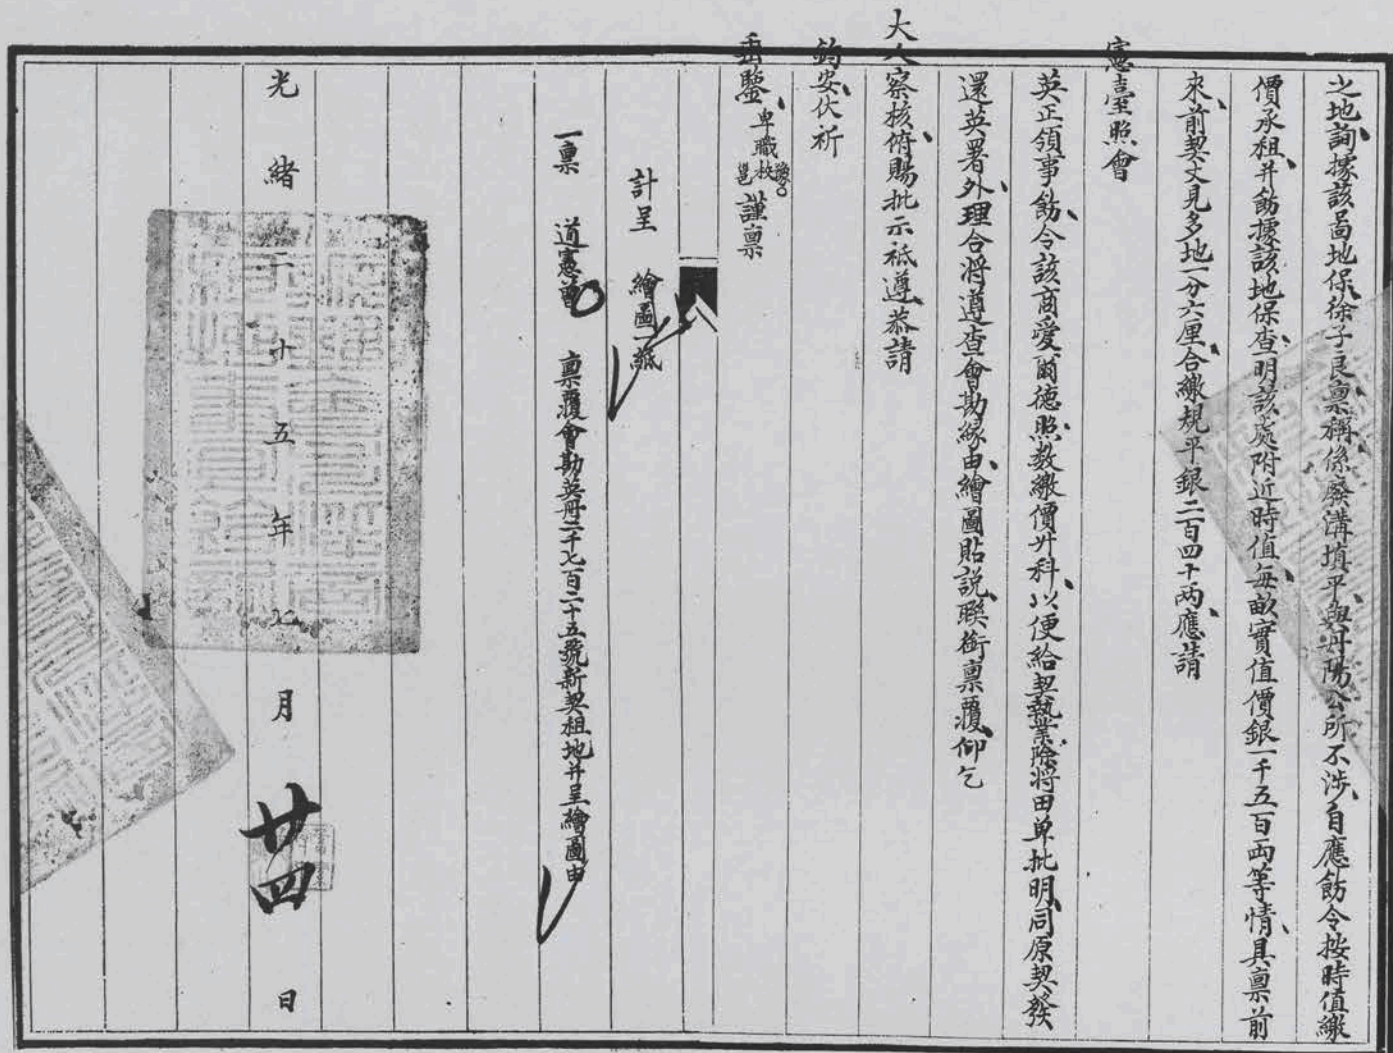 之地詢據該啚地保徐子良禀稱係廢溝填平與丹陽公所不涉自應飭令按時值繳
價承租并飭據該地保查明該處附近時值每畝實值價銀一千五百両等情具禀前
來前契丈見多地一分六厘合繳規平銀二百四十両應請
憲臺照會
英正領事飭令該商愛爾德照数繳價升科以便給契執業除將田单批明同原契發
還英署外理合將遵查會勘緣由繪圖貼説聯銜禀覆仰乞
大人察核俯賜批示祗遵恭請
鈞安伏祈
垂鑒卑職枚邕謹禀
計呈 繪圖一紙
一禀 道憲 禀覆會勘英冊二千七百二十五號新契租地并呈繪圖由
光緒二十五年七月廿四日